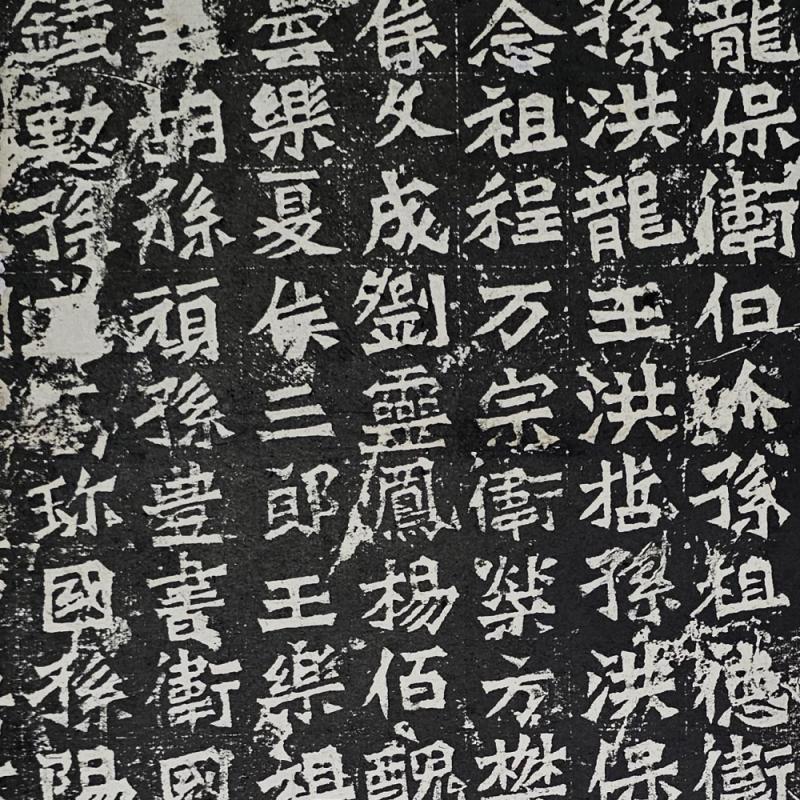 龍保衛伯孫祖德衛
孫洪龍王洪哲孫洪保
念祖程万宗衛榮方樊
文成劉靈鳳楊佰醜
曇樂夏侯三郎王樂祖
胡孫頑孫豊書衛國
孫珎國孫陽